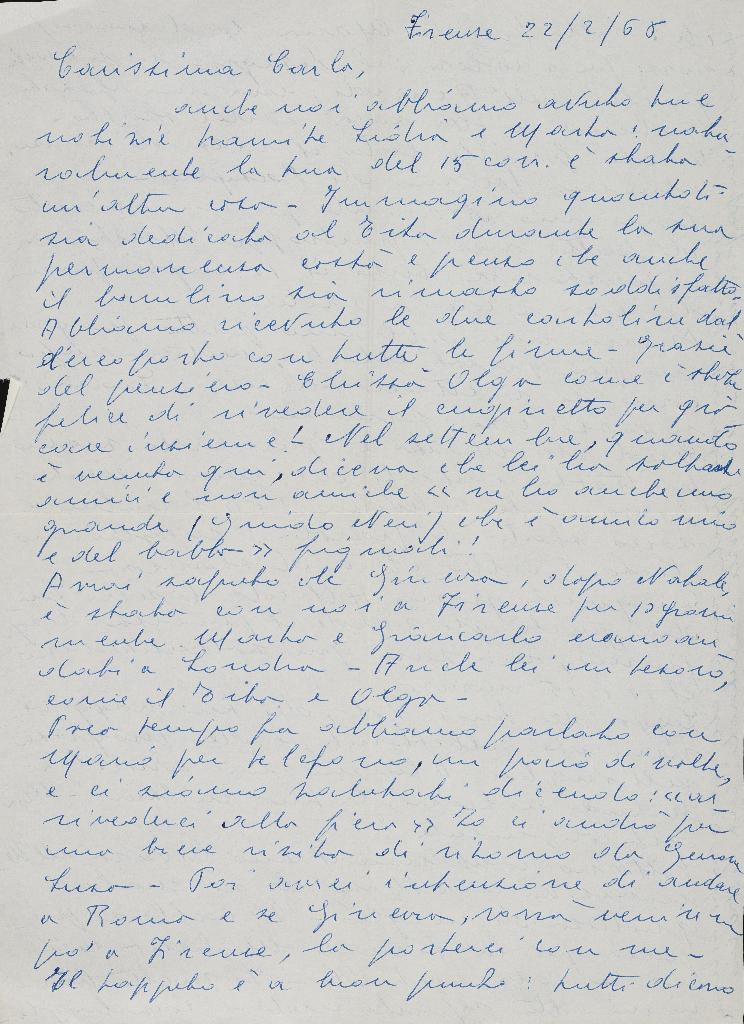 Firenze 22/2/68
Carissima Carla,
anche noi abbiamo avuto tue
notizie tramite Lidia e Marta: natu
ralmente la tua del 15 corr. è stata
un'altra cosa - Immagino quanto ti
sia dedicata al Tito durante la sua
permanenza costà e penso che anche
il bambino sia rimasto soddisfatto.
Abbiamo ricevuto le due cartoline dal
l'aeroporto con tutte le firme - Grazie
del pensiero - Chissà Olga come è stata
felice di rivedere il cuginetto per gio
care insieme! - Nel settembre, quando
è venuta qui, diceva che lei ha soltanto
amici e non amiche « ne ho anche uno
grande (Guido Neri) che è amico mio
e del babbo » figurati!
Avrai saputo che Ginevra, dopo Natale,
è stata con noi a Firenze per 10 giorni
mentre Marta e Giancarlo erano an
dati a Londra - Anche lei un tesoro,
come il Tito e Olga -
Poco tempo fa abbiamo parlato con
Mario per telefono, un paio di volte,
e ci siamo salutati dicendo: « ar
rivederci alla fiera » Io ci andrò per
una breve visita di ritorno da Genova
- Poi avrei intenzione di andare
a Roma e se Ginevra, vorrà venire un
po' a Firenze, la porterei con me -
Il tappeto è a buon punto: tutti dicono